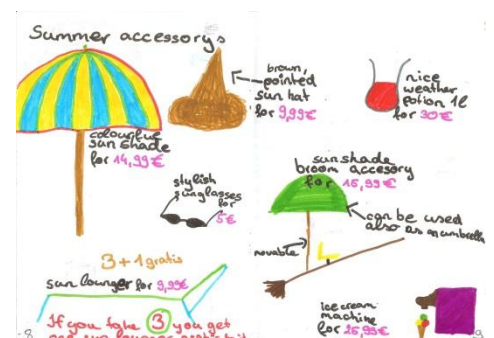 Summer accessorys
colourful
sun shade
for 14,99€
brown,
pointed
sun hat
for 9,99€
nice
weather
potion 1l
for 30€
stylish
sunglasses
for
5€
sunshade
broom accesory
for 15,99€
can be used
also as an umbrella
movable
3+1 gratis
sun lounger for 9,99€
If you take 3 you get
ice cream
machine
for 25,99€
8
9